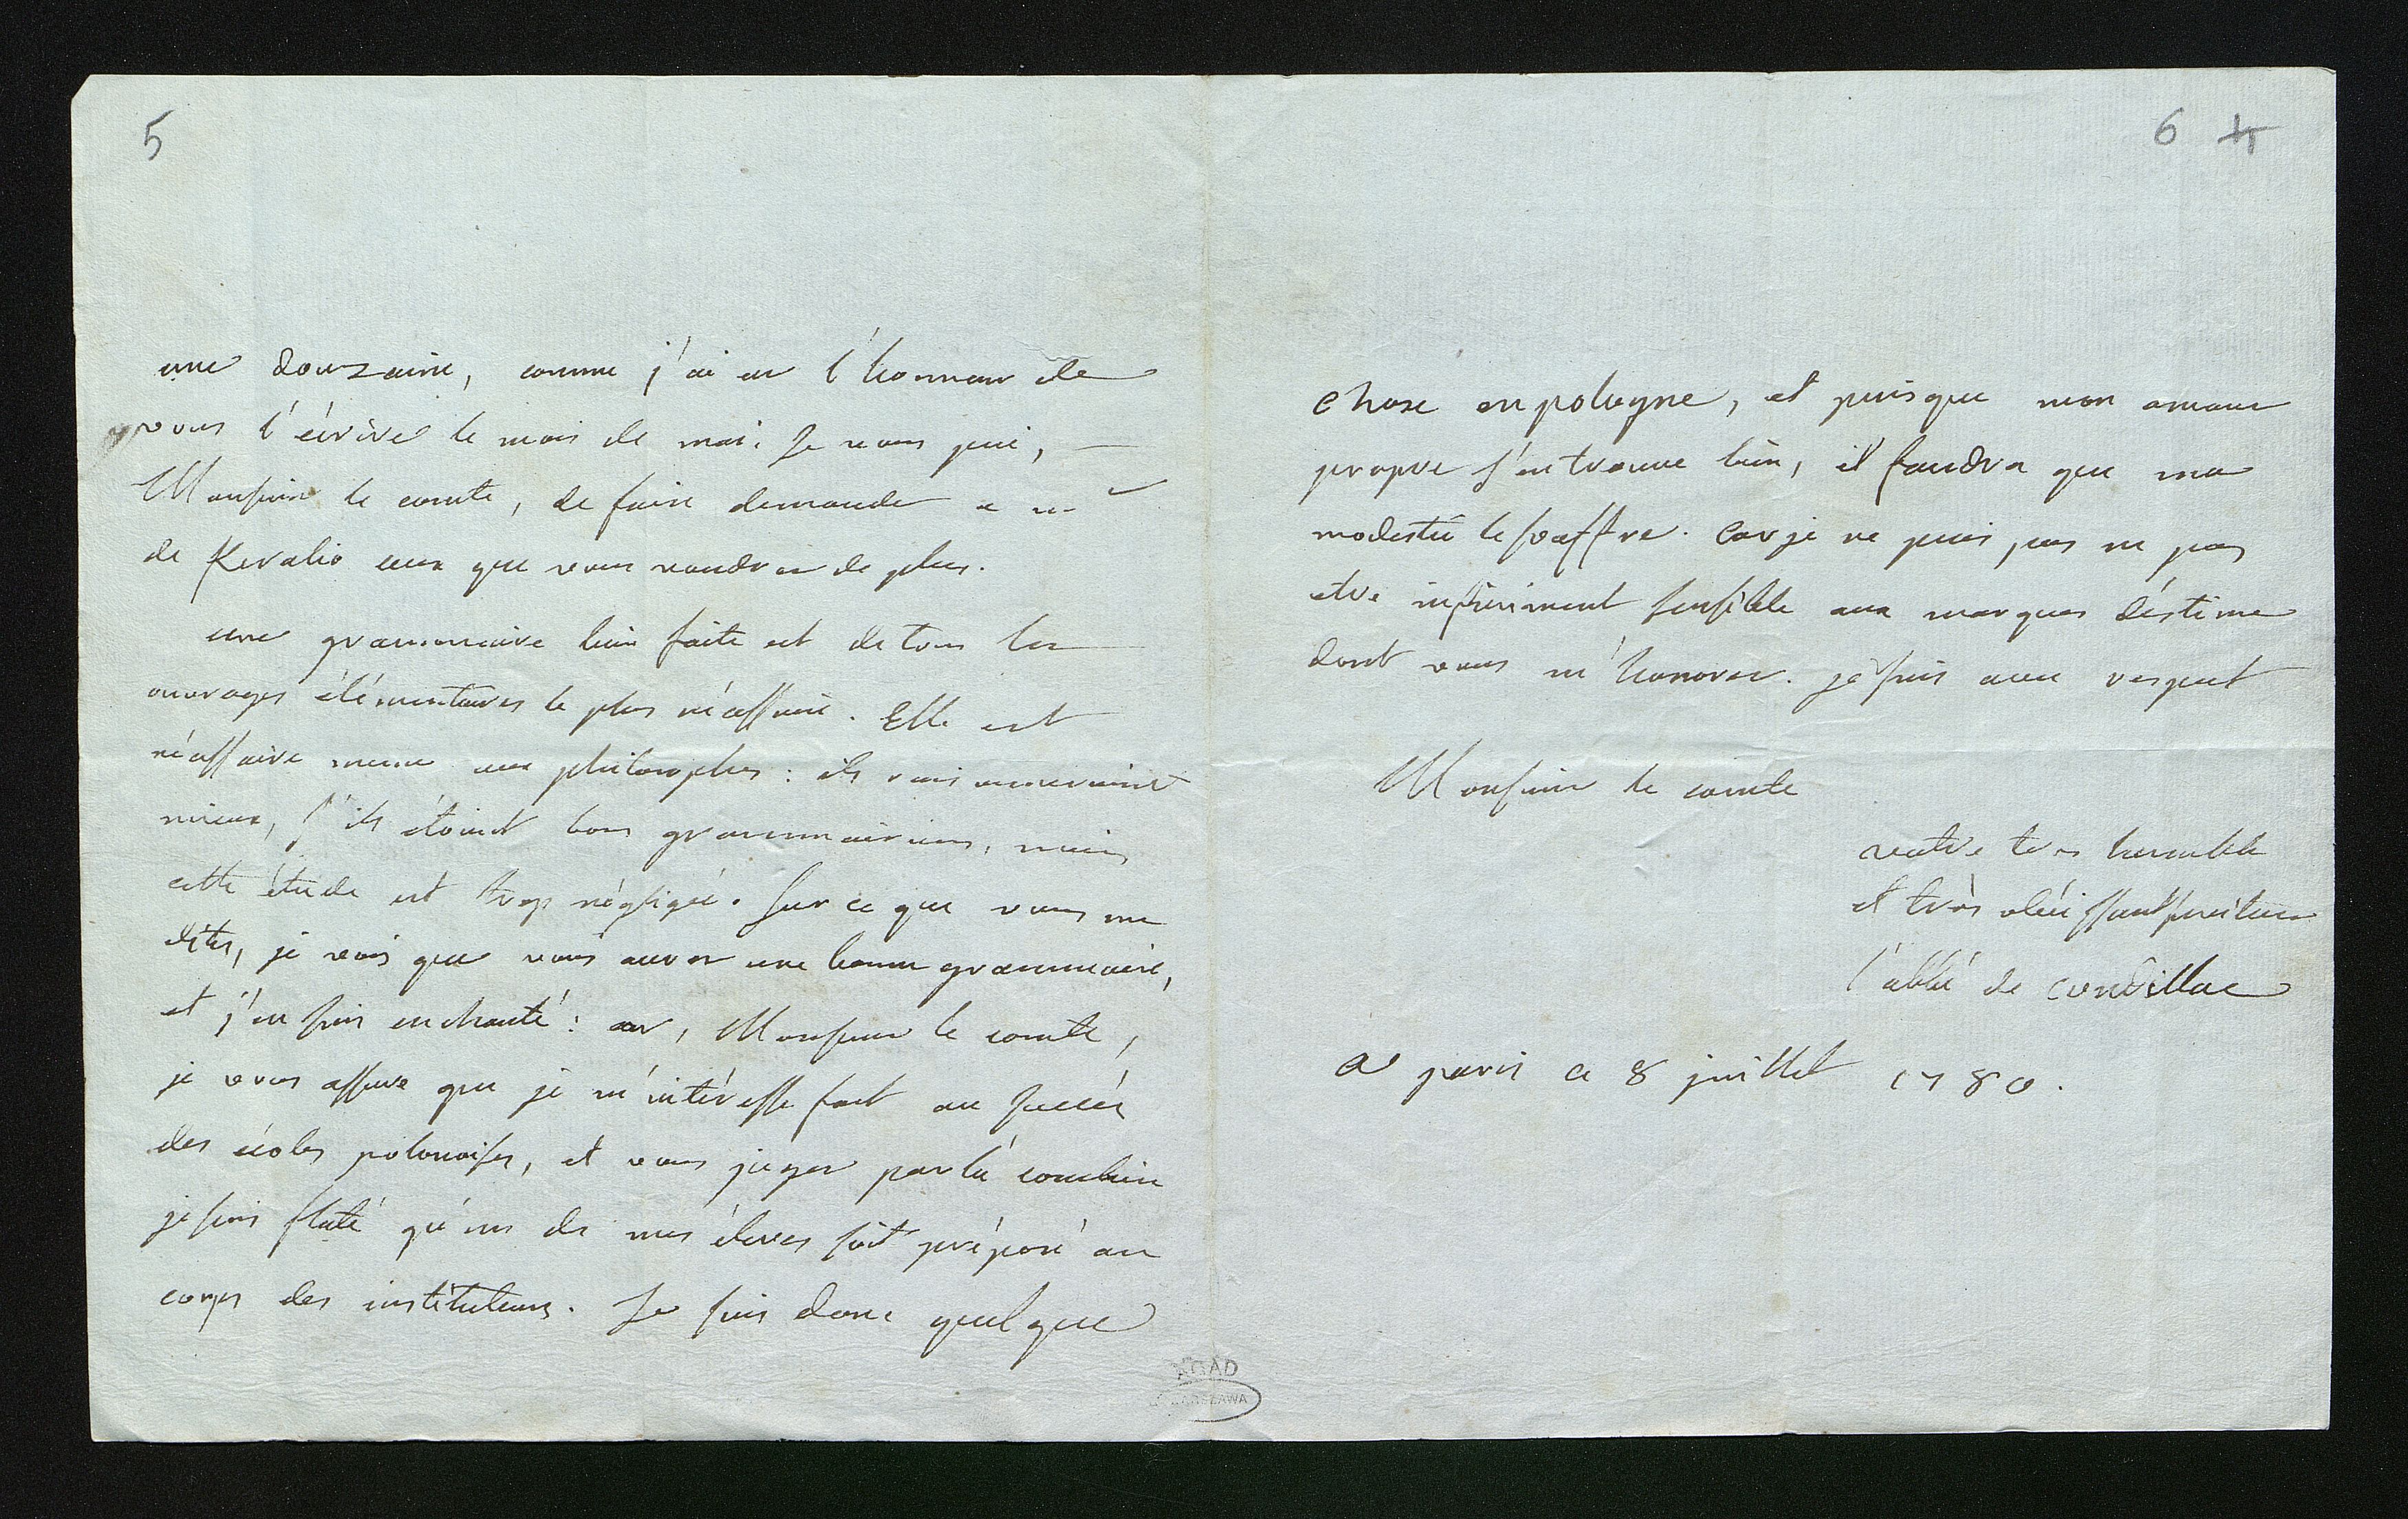 5
une douzaine, comme j'ai eu l'honneur de
vous l'écrire le mois de mai. Je vous prie,
Monsieur le comte, de faire demander a mr
de Keralio ceux que vous voudrez de plus.
une grammaire bien faite est de tous les
ouvrages élémentaires le plus nécessaire. Elle est
nécessaire meme aux philosophes: ils raisonneroient
mieux, s'ils étoient bons grammairiens, mais
cette étude est trop négligée. Sur ce que vous me
dites, je vois que vous aurez une bonne grammaire,
et j'en suis enchanté: car, Monsieur le comte,
je vous assure que je m'intéresse fort au succès
des écoles polonoises, et vous jugez par là combien
je suis flaté qu'un de mes éleves soit préposé au
corps des instituteurs. Je suis donc quelque
6 4
chose en pologne, et puisque mon amour
propre s'en trouve bien, il faudra que ma
modestie le souffre. Car je ne puis pas ne pas
etre infiniment sensible aux marques d'éstime
dont vous m'honorez. je suis avec respect
Monsieur le comte
votre tres humble
et très obéissant serviteur
l'abbé de Condillac
a paris ce 8 juillet 1780.
AGAD
WARSZAWA